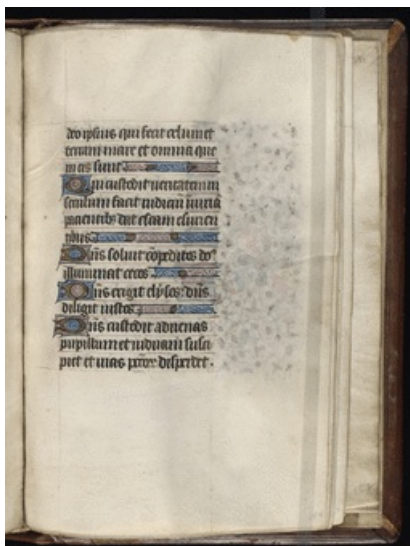 deo ipsius qui fecit celum et
terram mare et omnia que
in eis sunt
Qui custodit ueritatem in
seculum facit iudiciū iniuriā
pacientibꝫ dat escam esurien
tibus
Dn̄s soluit cōpeditos dn̄s
illuminat cecos
Dn̄s erigit elysos: dn̄s
diligit iustos
Dn̄s custodit aduenas
pupillum et uiduam susci
piet et uias pctōꝝ disperdet.